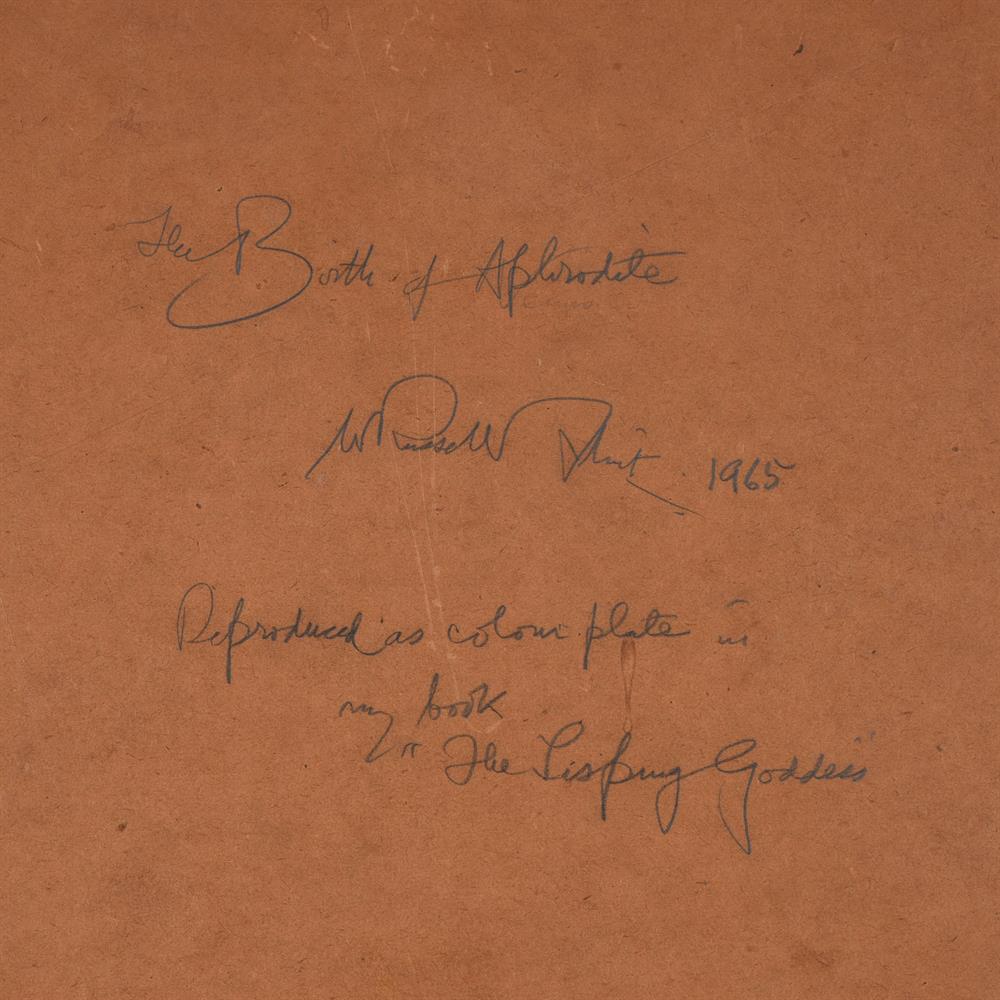 The Birth of Aphrodite
W Russell Flint. 1965
Reproduced as colour plate in
my book
"The Lisping Goddess"